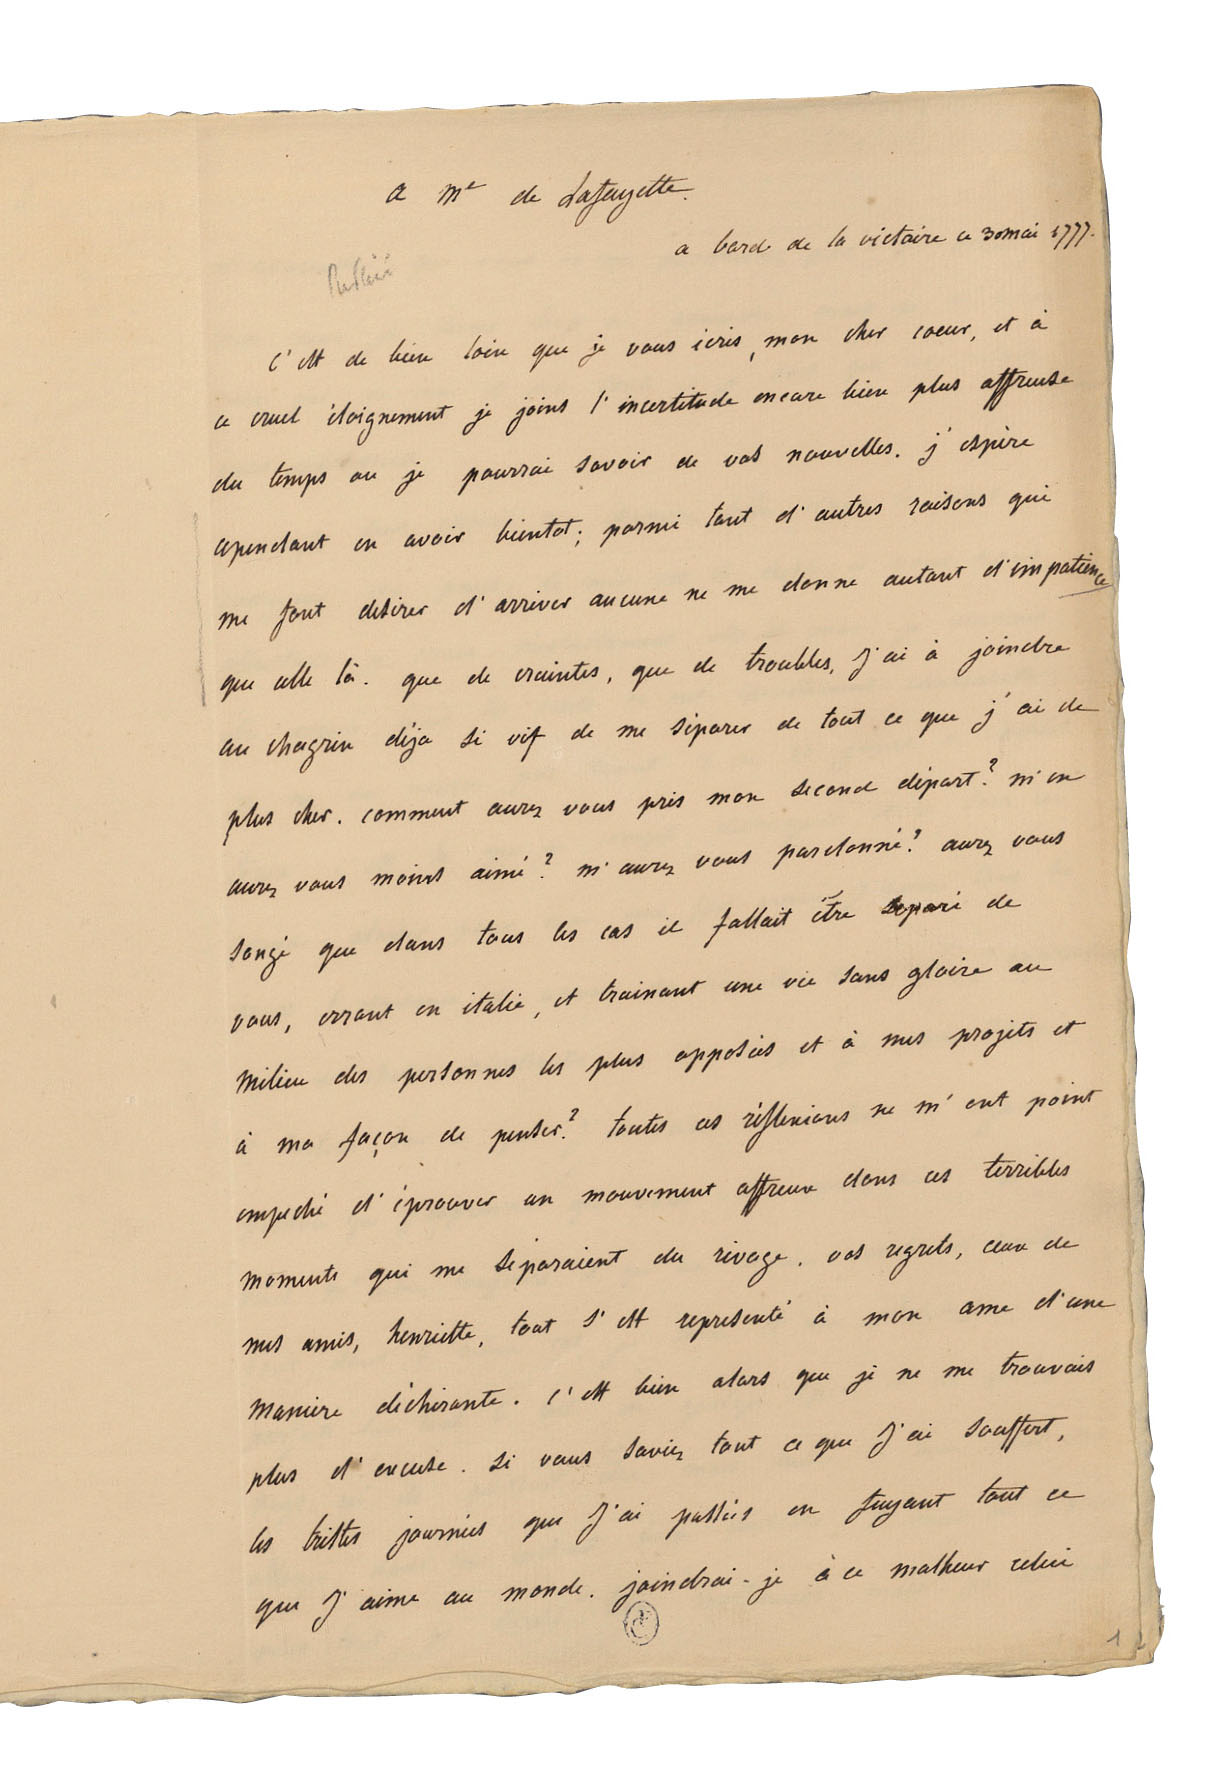 a Me de Lafayette.
a bord de la victoire ce 30 mai 1777.
Publié
c'est de bien loin que je vous écris, mon cher coeur, et à
ce cruel éloignement je joins l'incertitude encore bien plus affreuse
du temps ou je pourrai savoir de vos nouvelles. j'espère
cependant en avoir bientot; parmi tant d'autres raisons qui
me font desirer d'arriver aucune ne me donne autant d'impatience
que celle là. que de craintes, que de troubles, j'ai à joindre
au chagrin déja si vif de me séparer de tout ce que j'ai de
plus cher. comment aurez vous pris mon second départ? m'en
aurez vous moins aimé? m'aurez vous pardonné? aurez vous
songé que dans tous les cas il fallait être separé de
vous, errant en italie, et trainant une vie sans gloire au
milieu des personnes les plus opposées et à mes projets et
à ma façon de penser? toutes ces réflexions ne m'ont point
empeché d'éprouver un mouvement affreux dans ces terribles
moments qui me séparaient du rivage. vos regrets, ceux de
mes amis, henriette, tout s'est representé à mon ame d'une
maniere déchirante. c'est bien alors que je ne me trouvais
plus d'excuse. si vous saviez tout ce que j'ai souffert,
les tristes journées que j'ai passées en fuyant tout ce
que j'aime au monde. joindrai-je à ce malheur celui
1